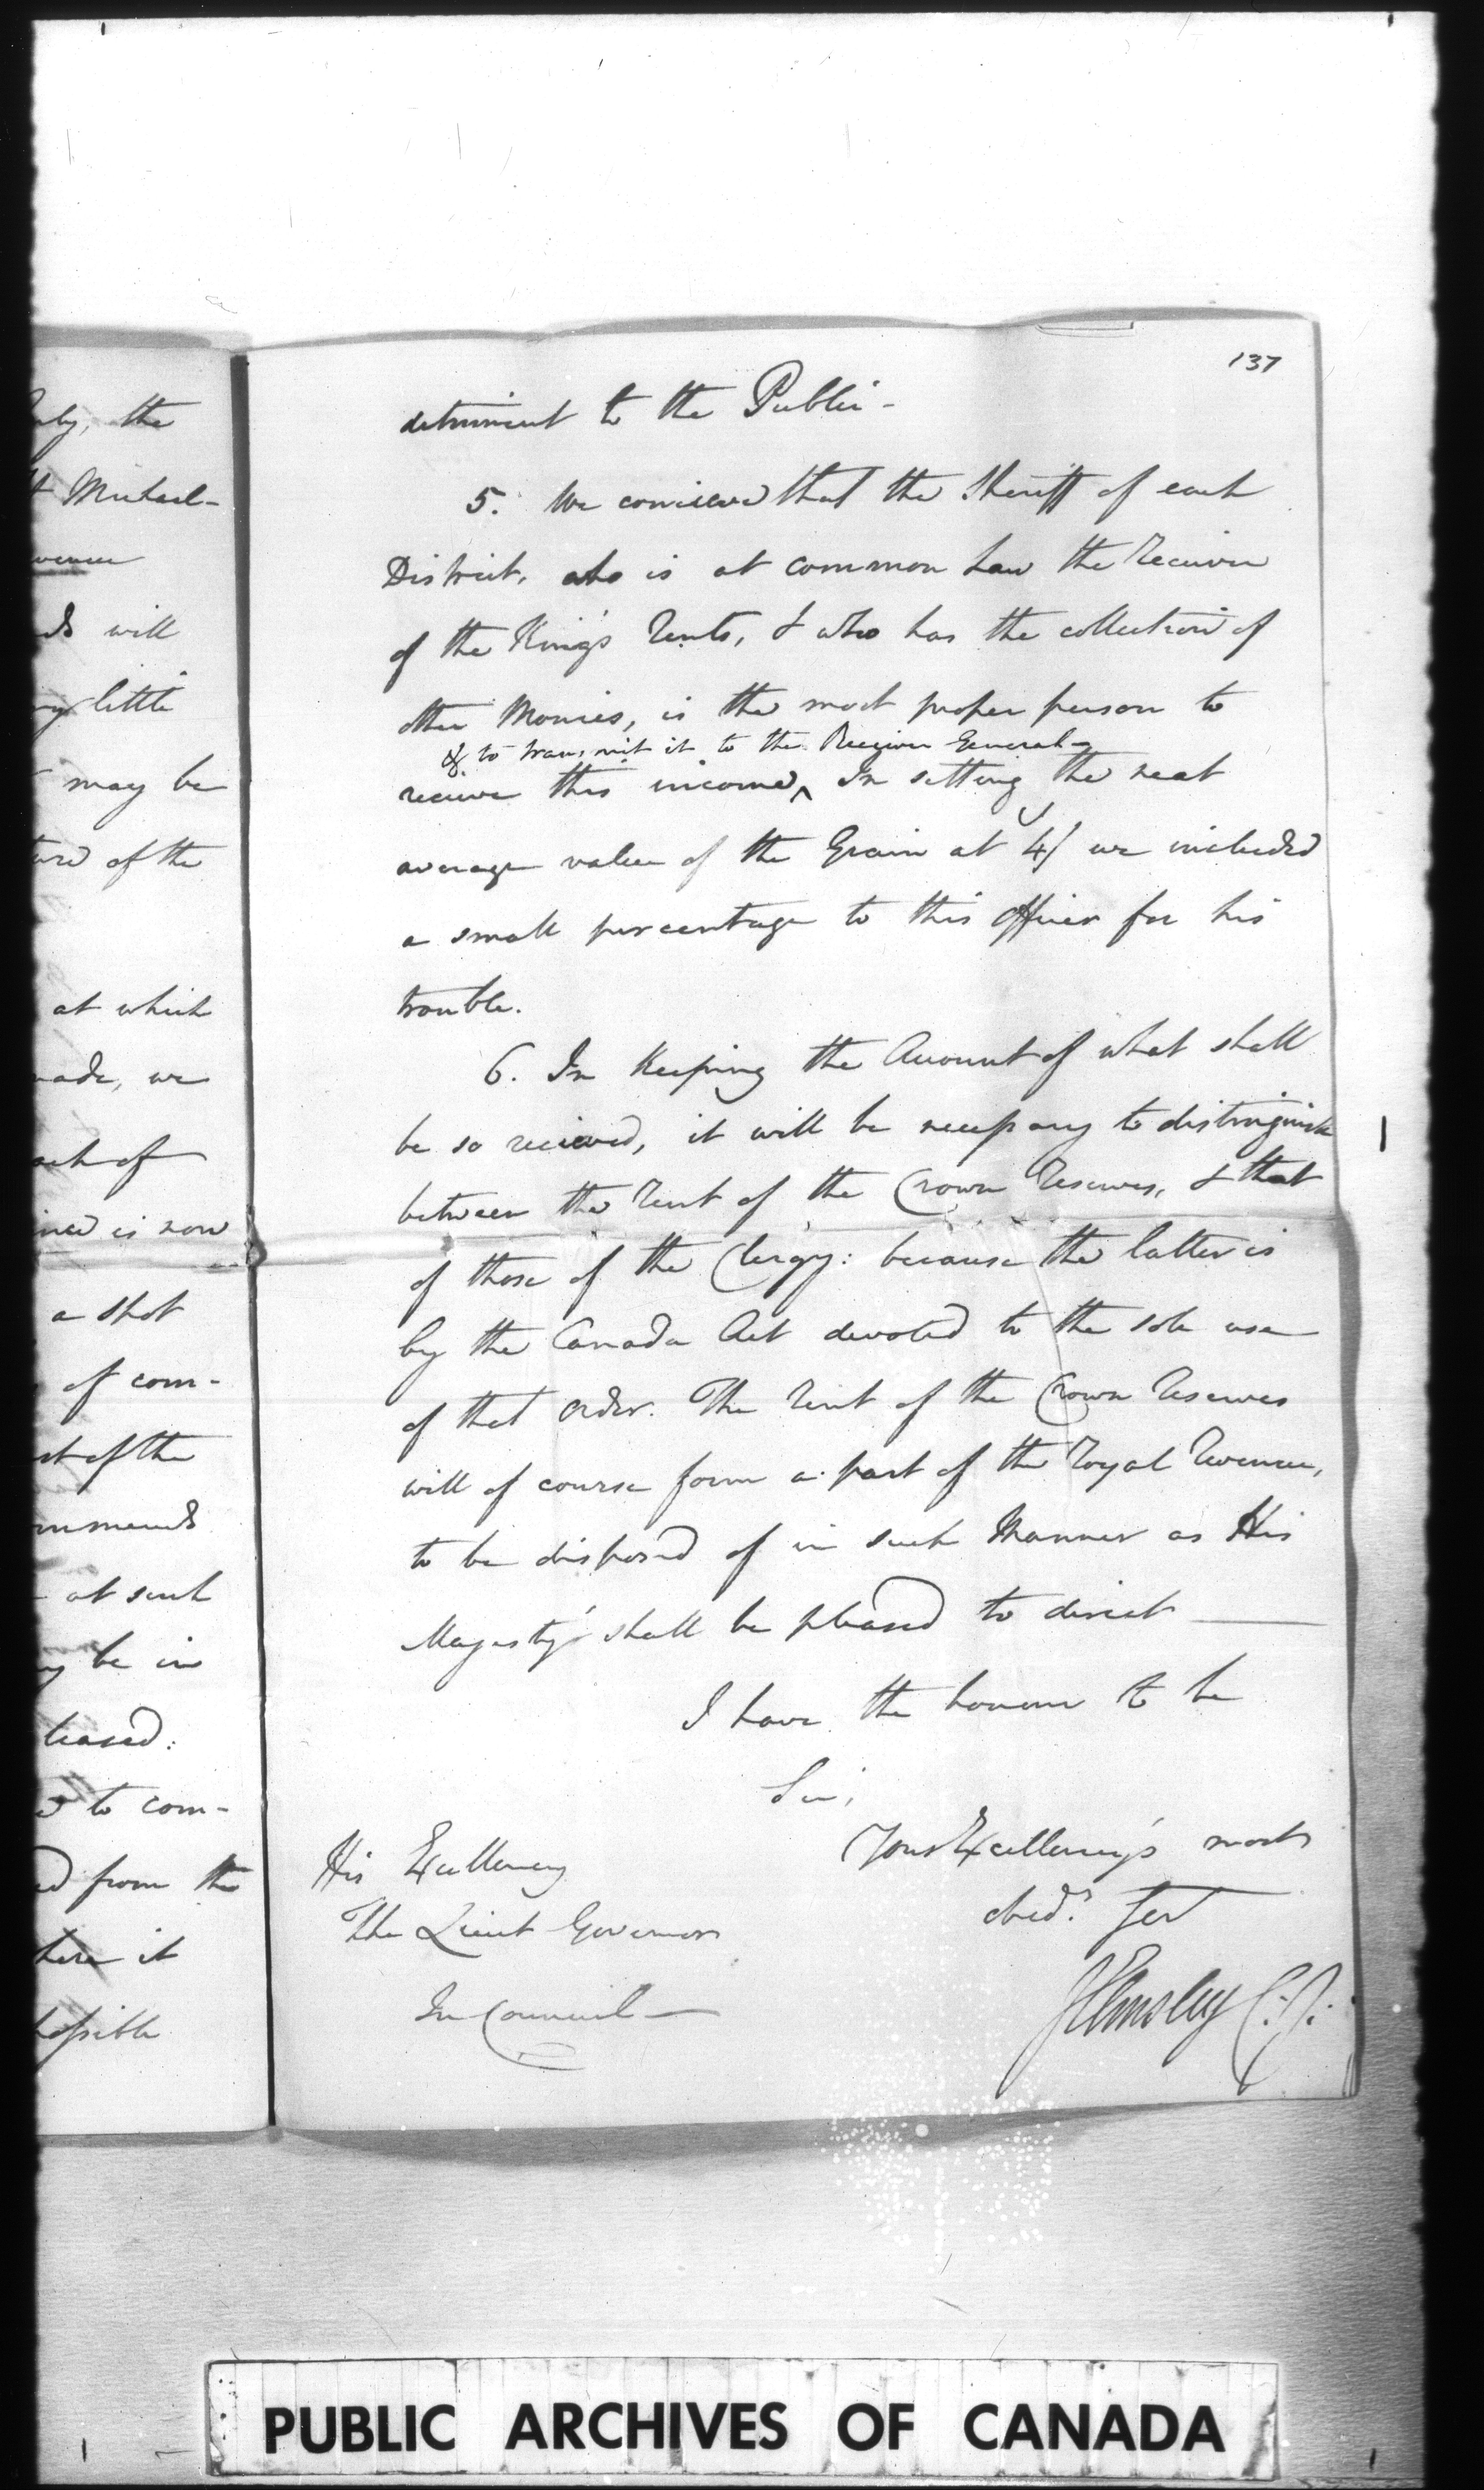 137
detriment to the Public -
5. We conceive that the Sheriff of each
District, who is at common Law the Receiver
of the King's Rents, & who has the collection of
other Monies, is the most proper person to
& to transmit it to the Receiver General -
receive this income ^ In setting the neat
average value of the Grain at 4/ we included
a small percentage to this Officer for his
trouble.
6. In Keeping the Account of what shall
be so received, it will be necessary to distinguish
between the Rent of the Crown Reserves, & that
of those of the Clergy: because the latter is
by the Canada Act devoted to the sole use
of that Order. The Rent of the Crown Reserves
will of course form a part of the Royal Revenue,
to be disposed of in such Manner as His
Majesty shall be pleased to direct
I have the honour to be
Sir,
Your Excellency's most
obed.t Ser
J Elmsley C.J.
His Excellency
The Lieut Governor
In Council
the
Michael-
will
little
may be
of the
at which
we
of
is now
a shot
of com-
of the
at such
be in
leased:
to com-
from the
it
PUBLIC ARCHIVES OF CANADA